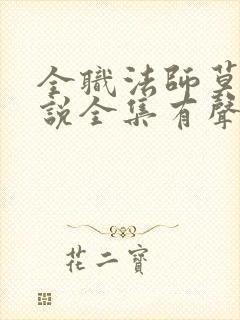 全職法師莫
說全集有聲
花二寶